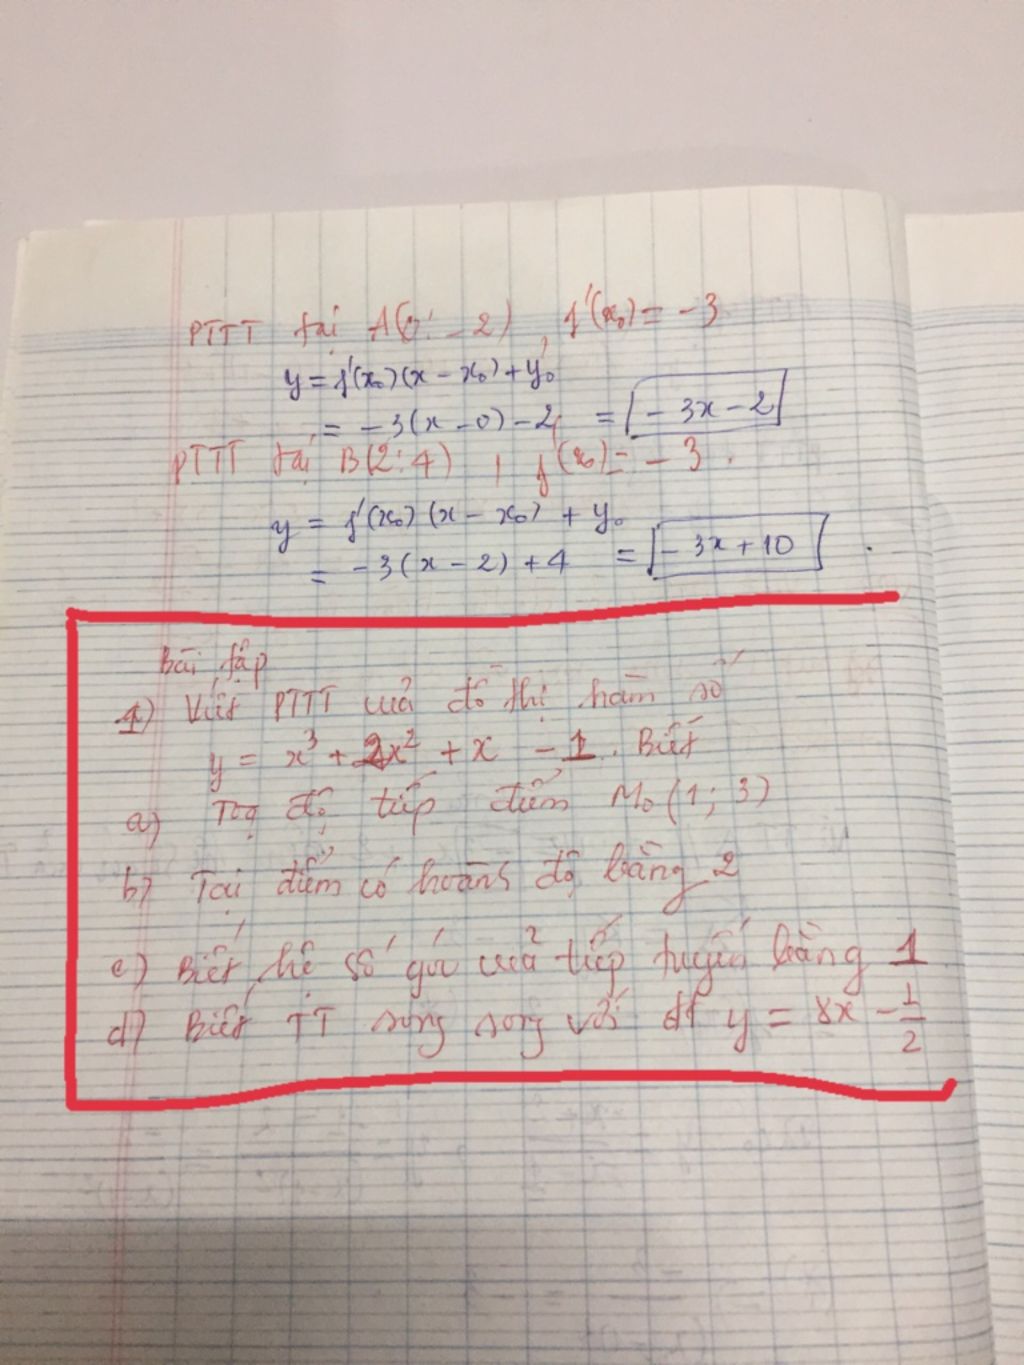 PTTT tại A(0; -2), f'(x₀) = -3
y = f'(x₀)(x - x₀) + y₀
= -3(x - 0) - 2 = -3x - 2
PTTT tại B(2; 4), f'(x₀) = -3.
y = f'(x₀)(x - x₀) + y₀
= -3(x - 2) + 4 = -3x + 10
Bài tập
1) Viết PTTT của đồ thị hàm số
y = x³ + 2x² + x - 1. Biết
a) Toạ độ tiếp điểm M₀(1; 3)
b) Tại điểm có hoành độ bằng 2
c) Biết hệ số góc của tiếp tuyến bằng 1
d) Biết TT song song với đt y = 8x - 1/2